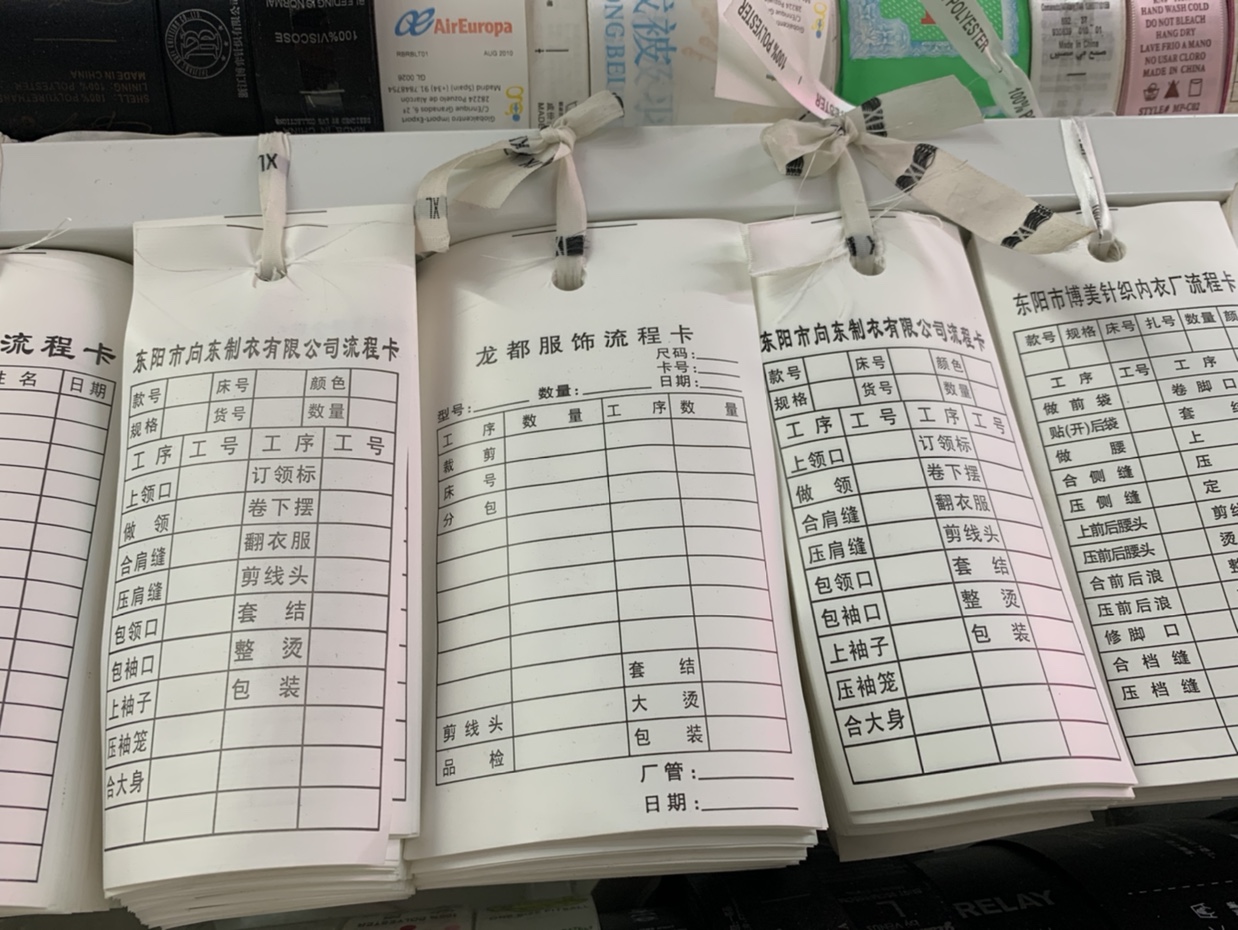 100%VISCOSE
MADE IN CHINA
AirEuropa
Globalcentro Import-Export
C/Enrique Granados, nº 21, 6
28224 Pozuelo de Alarcón
Madrid (Spain) (+34) 91 7848754
100% POLYESTER
POLYESTER
Made in China
HAND WASH COLD
DO NOT BLEACH
HANG DRY
LAVE FRIO A MANO
NO USAR CLORO
MADE IN CHINA
STYLE# MP-C82
XL
XL
流程卡
姓名 日期
东阳市向东制衣有限公司流程卡
款号 床号 颜色
规格 货号 数量
工序 工号 工序 工号
上领口 订领标
做领 卷下摆
合肩缝 翻衣服
压肩缝 剪线头
包领口 套结
包袖口 整烫
上袖子 包装
压袖笼
合大身
龙都服饰流程卡
尺码:
卡号:
型号: 数量: 日期:
工序 数量 工序 数量
裁剪
床号
分包
套结
大烫
剪线头 包装
品检
厂管:
日期:
东阳市向东制衣有限公司流程卡
款号 床号 颜色
规格 货号 数量
工序 工号 工序 工号
上领口 订领标
做领 卷下摆
合肩缝 翻衣服
压肩缝 剪线头
包领口 套结
包袖口 整烫
上袖子 包装
压袖笼
合大身
东阳市博美针织内衣厂流程卡
款号 规格 床号 扎号 数量 颜
工序 工号 工序
做前袋 卷脚口
贴(开)后袋 套
做腰 上
合侧缝 压
压侧缝 定
上前后腰头 剪线
压前后腰头 烫
合前后浪 整
压前后浪
修脚口
合裆缝
压裆缝
RELAY